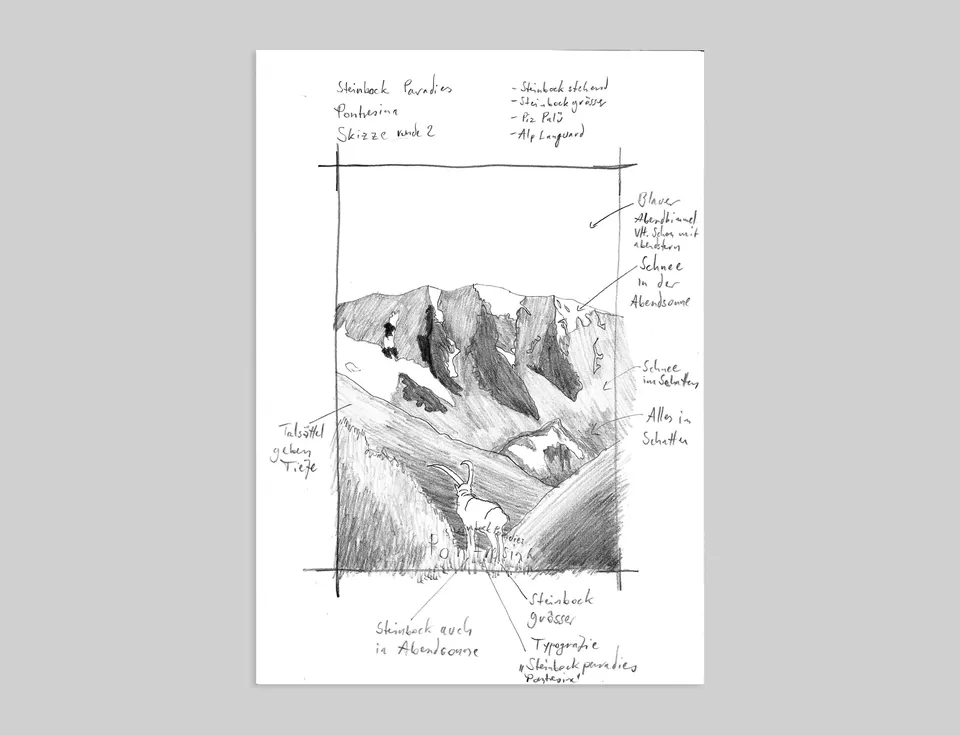 Steinbock Paradies
Pontresina
Skizze runde 2
- Steinbock stehend
- Steinbock grösser
- Piz Palü
- Alp Languard
Blauer
Abendhimmel
Vllt. Schon mit
abendstern
Schnee
in der
Abendsonne
Schnee
im Schatten
Alles in
Schatten
Talsättel
geben
Tiefe
Steinbock paradies
Pontresina
Steinbock
grösser
Steinbock auch
in Abendsonne
Typografie
"Steinbockparadies
Pontresina"